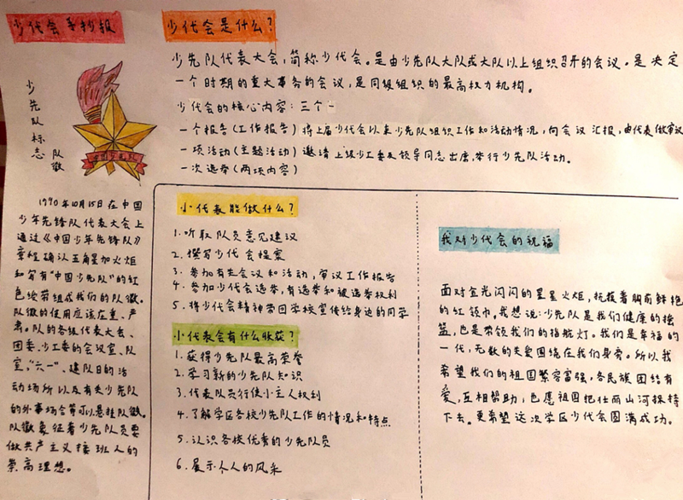 少代会手抄报
少先队标志
队徽
1990年10月15日在中国
少年先锋队代表大会上
通过《中国少年先锋队》
章程确认五角星加火炬
和写有“中国少先队”的红
色绶带组成我们的队徽。
队徽的使用应该庄重、严
肃。队的各级代表大会、
团委、少工委的会议室、队
室、“六一”、建队日的活
动场所以及有关少先队
的外事场合等可以悬挂队徽。
队徽象征着少先队员要
做共产主义接班人的
崇高理想。
少代会是什么？
少先队代表大会，简称少代会。是由少先队大队或大队以上组织召开的会议。是决定
一个时期的重大事务的会议，是同级组织的最高权力机构。
少代会的核心内容：三个一
一个报告（工作报告）将上届少代会以来少先队组织工作和活动情况，向会议汇报，由代表做审议
一项活动（主题活动）邀请上级少工委及领导同志出席，举行少先队活动。
一次选举（两项内容）
小代表能做什么？
1.听取队员意见建议
2.撰写少代会提案
3.参加有关会议和活动，审议工作报告
4.参加少代会选举，有选举和被选举权利
5.将少代会精神带回学校宣传给身边的同学
小代表会有什么收获？
1.获得少先队最高荣誉
2.学习新的少先队知识
3.代表队员行使小主人权利
4.了解学区各校少先队工作的情况和特点
5.认识各校优秀的少先队员
6.展示个人的风采
我对少代会的祝福
面对金光闪闪的星星火炬，抚摸着胸前鲜艳
的红领巾，我想说：少先队是我们健康的摇
篮，也是带领我们的指航灯。我们是幸福的
一代，无数的关爱围绕在我们身旁。所以我
希望我们的祖国繁容富强，各民族团结有
爱，互相帮助，也愿祖国把壮丽山河保持
下去。更希望这次学区少代会圆满成功。